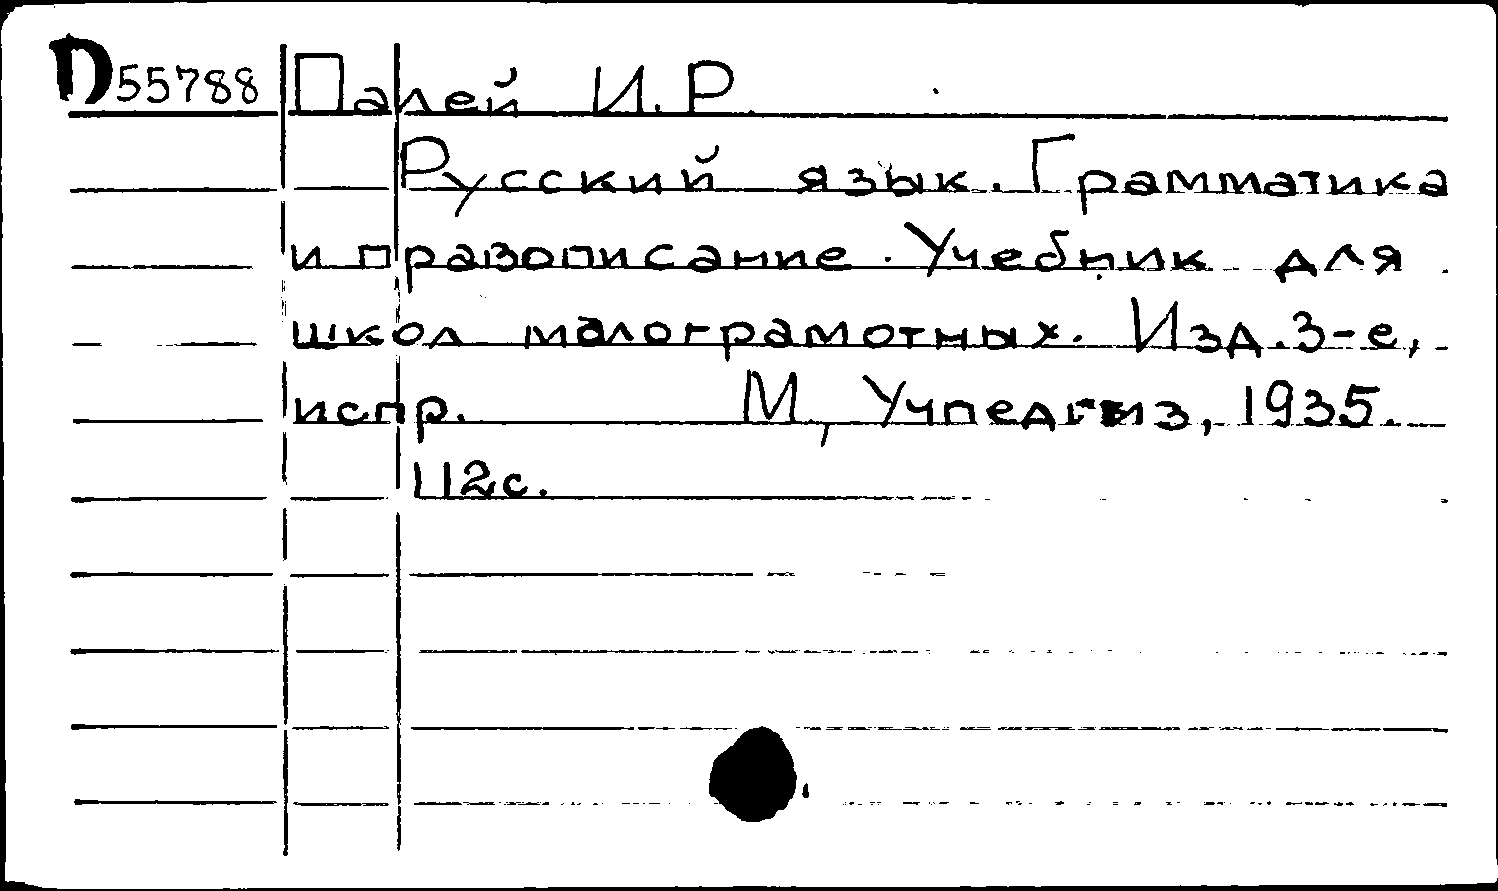 D55788 Палей И.Р.
Русский язык. Грамматика
и правописание. Учебник для
школ малограмотных. Изд.3-е,
испр. М, Учпедгиз, 1935.
112с.